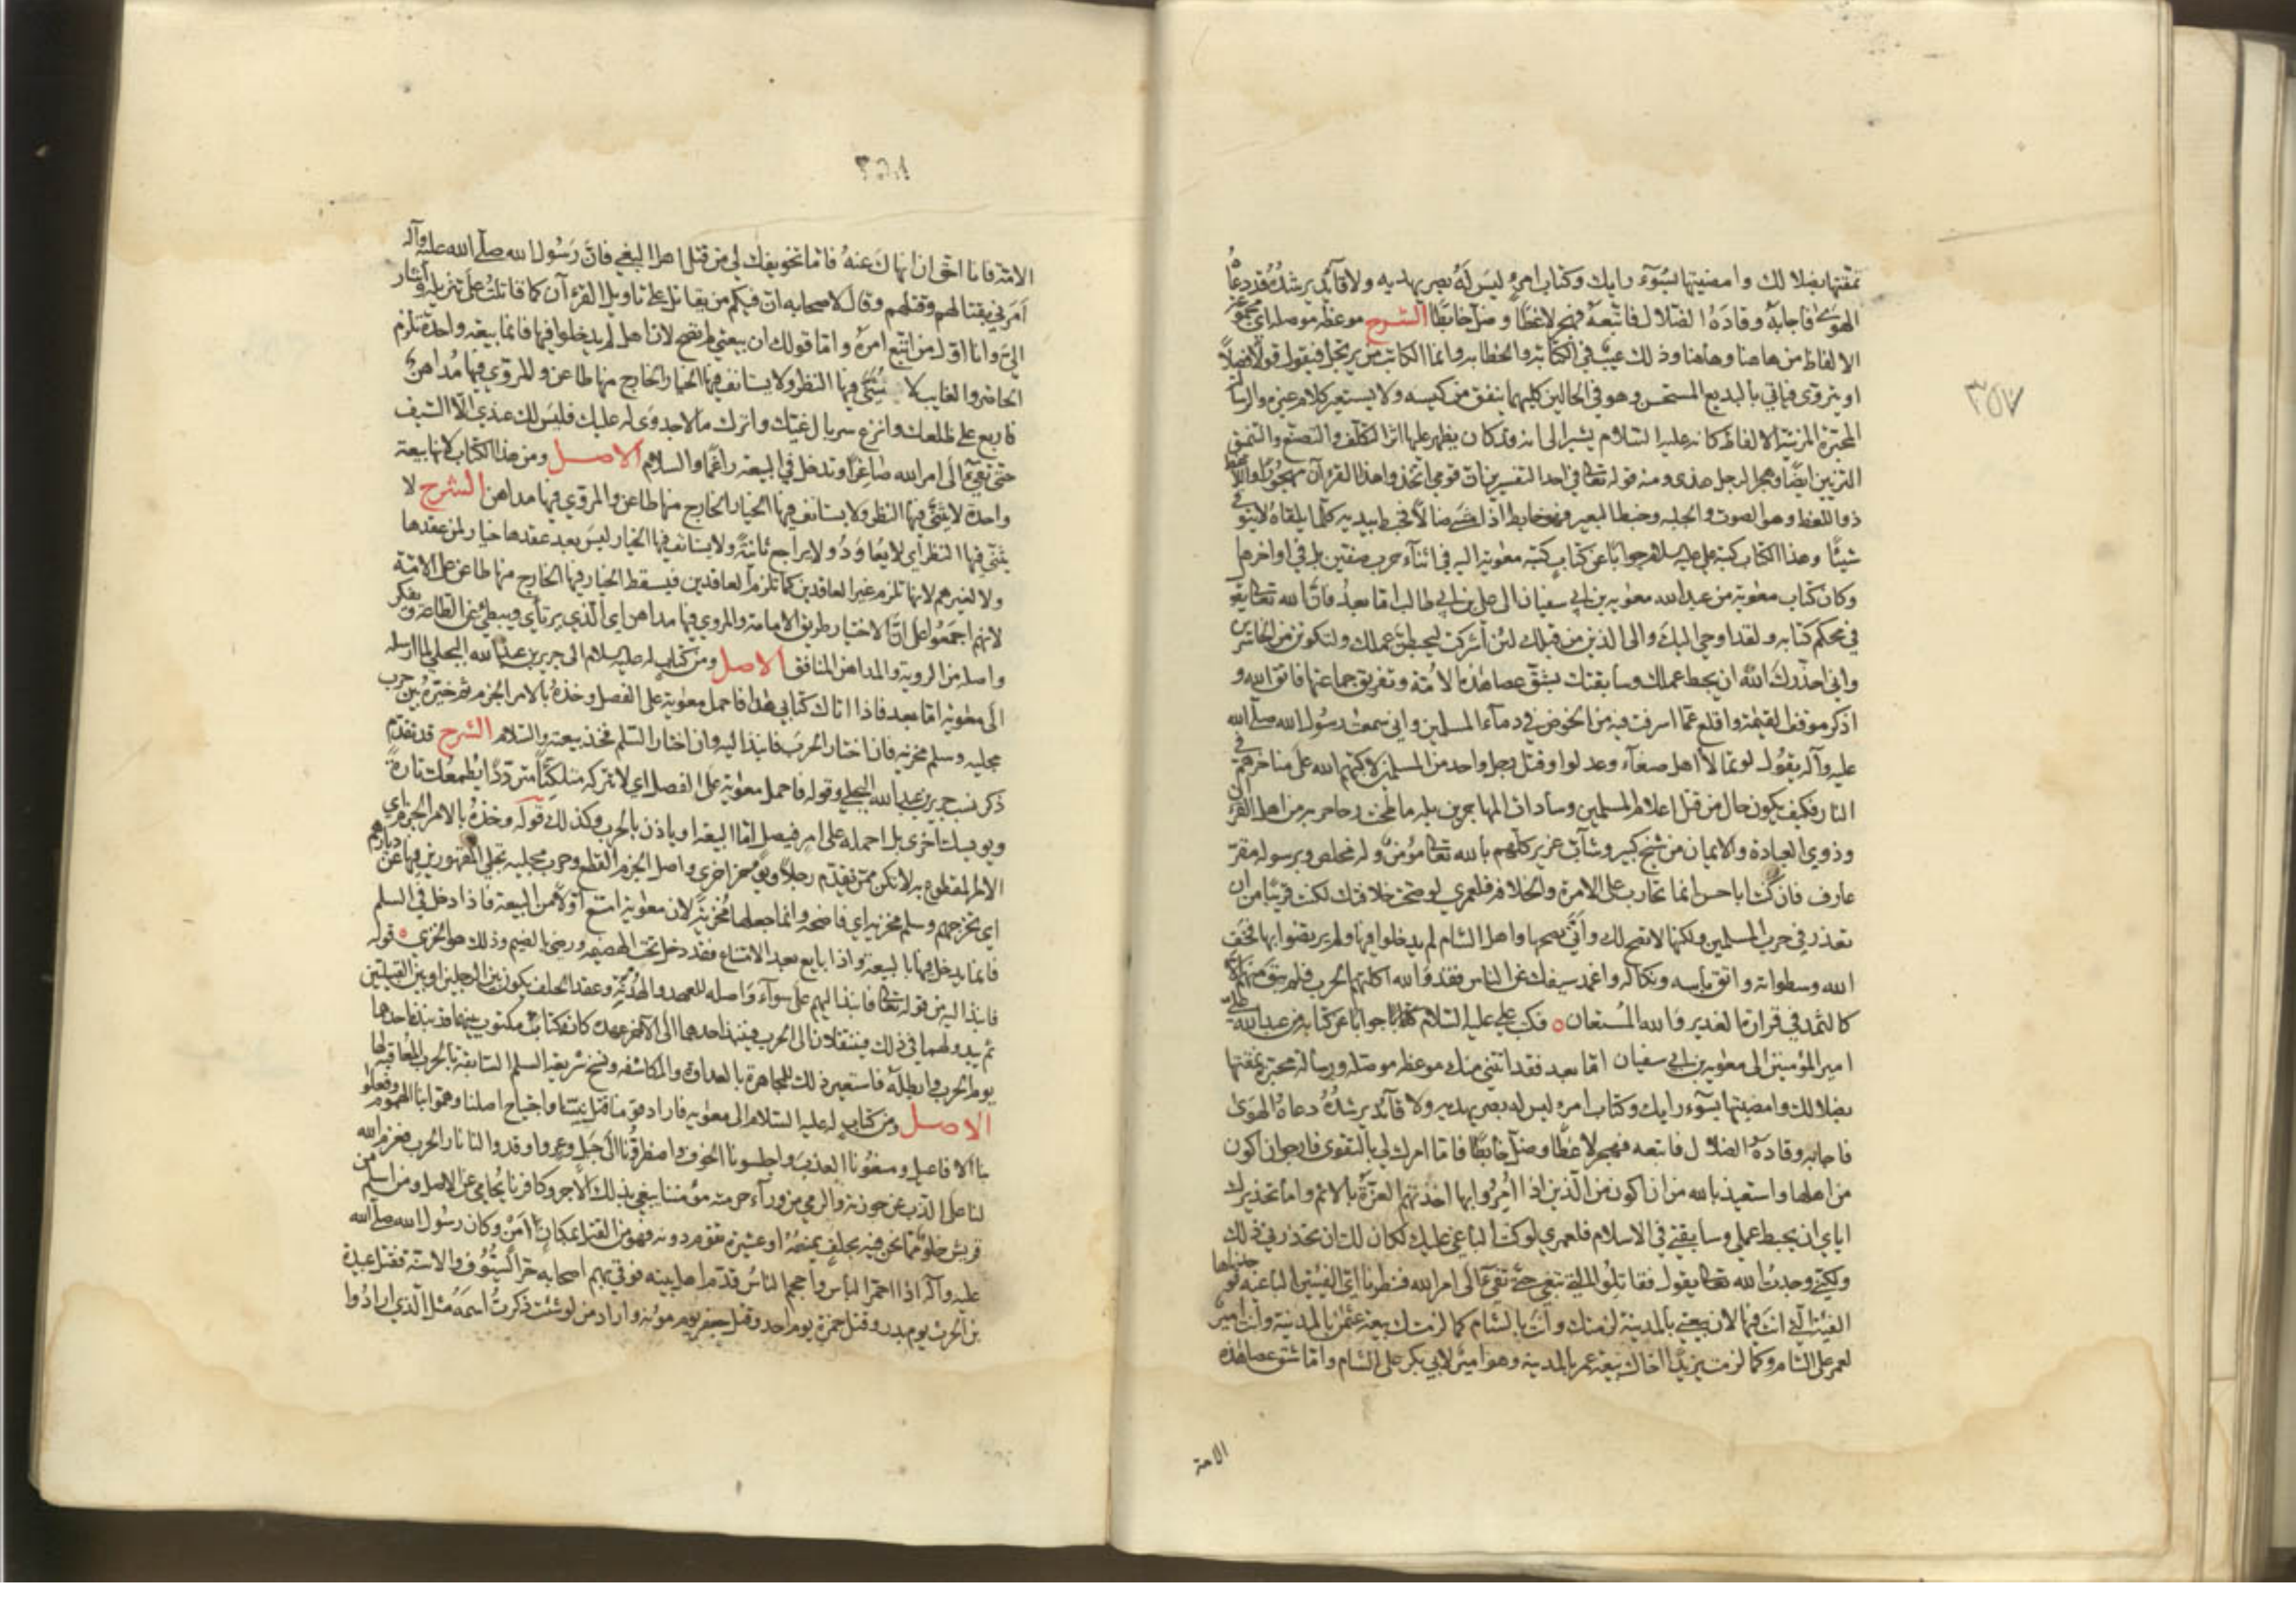 ٣٥٧
نمقتها بضلالك وامضيتها بسوء رايك وكتاب امرئ ليس له بصر يهديه ولا قائد يرشده قد دعاه
الهوى فاجابه وقاده الضلال فاتبعه فهجر لاغطا وضل خابطا الشرح موعظه موصله اى مجموعة
الالفاظ من هاهنا وهاهنا وذلك عيب في الكتابة والخطابه وانما الكاتب من يرتجل فيقول قولا فصلا
او يتروى فياتي بالبديع المستحسن وهو في الحالين كليهما ينفق من كيسه ولا يستعير كلام غيره والرسالة
المحبرة المزينة الالفاظ كانه عليه السلام يشير الى انه قد كان يظهر عليها اثر التكلف والتصنع والتنمق
التزيين ايضا وهجر الرجل هذى ومنه قوله تعالى في احد التفسيرين ان قومي اتخذوا هذا القرءان مهجورا واللاغط
ذو اللغط وهو الصوت والجلبه وخبط البعير فهو خابط اذا مشى ضالا فخبط بيديه كلما يلقاه لا يتوقى
شيئا وهذا الكتاب كتبه علي عليه السلام جوابا عن كتاب كتبه معوية اليه في اثناء حرب صفين بل في اواخرها
وكان كتاب معوية من عبد الله معويه بن ابي سفيان الى علي بن ابي طالب اما بعد فان الله تعالى يقول
في محكم كتابه ولقد اوحي اليك والى الذين من قبلك لئن اشركت ليحبطن عملك ولتكونن من الخاسرين
واني احذرك الله ان يحبط عملك وسابقتك بشق عصا هذه الامة وتفريق جماعتها فاتق الله و
اذكر موقف القيمة واقلع عما اسرفت فيه من الخوض في دماء المسلمين واني سمعت رسول الله صلى الله
عليه وآله يقول لو تمالا اهل صنعاء وعدن لو قتل رجل واحد من المسلمين لاكبهم الله على مناخرهم في
النار فكيف يكون حال من قتل اعلام المسلمين وسادات المهاجرين بله ما طحنت رحا حربه من اهل القرآن
وذوي العبادة والايمان من شيخ كبير وشاب غرير كلهم بالله تعالى مؤمن وله مخلص وبرسوله مقر
عارف فان كنت ابا حسن انما تحارب على الامرة والخلافه فلعمري لو صحت خلافتك لكنت قريبا من ان
تعذر في حرب المسلمين ولكنها لا تصح لك وانى بصحتها واهل الشام لم يدخلوا فيها ولم يرتضوا بها فخف
الله وسطواته واتق باسه ونكاله واغمد سيفك عن الناس فقد والله اكلتهم الحرب فلم يبق منهم الا
كالثمد في قرارة الغدير والله المستعان ه فكتب علي عليه السلام كتابا جوابا عن كتابه من عبد الله علي
امير المؤمنين الى معويه بن ابي سفيان اما بعد فقد اتتني منك موعظه موصله ورسالة محبرة نمقتها
بضلالك وامضيتها بسوء رايك وكتاب امرء ليس له بصر يهديه ولا قائد يرشده دعاه الهوى
فاجابه وقاده الضلال فاتبعه فهجر لاغطا وضل خابطا فاما امرك لي بالتقوى فارجو ان اكون
من اهلها واستعيذ بالله من ان اكون من الذين اذا امروا بها اخذتهم العزة بالاثم واما تحذيرك
اياي ان يحبط عملي وسابقتي في الاسلام فلعمري لو كنت الباغي عليك لكان لك ان تحذرني ذلك
ولكني وجدت الله تعالى يقول فقاتلوا التي تبغي حتى تفيء الى امر الله فنظرنا الى الفئتين الباغيه فوجدناها
الفئة التي انت فيها لان بيعتي بالمدينة لزمتك وانت بالشام كما لزمتك بيعة عثمن بالمدينة وانت امير
لعمر على الشام وكما لزمت يزيد اخاك بيعة عمر بالمدينة وهو امير لابي بكر على الشام واما شق عصا هذه
الامة
٣٥٨
الامة فانا احق ان انهاك عنه فاما تخويفك لي من قتل اهل البغي فان رسول الله صلى الله عليه وآله
امرني بقتالهم وقتلهم وقال لاصحابه ان فيكم من يقاتل على تاويل القرءآن كما قاتلت على تنزيله واشار
الي وانا اول من اتبع امره واما قولك ان بيعتي لم تصح لان اهل لم يدخلوا فيها فانما بيعة واحدة تلزم
الحاضر والغايب لا يثنى فيها النظر ولا يستانف فيها الخيار الخارج منها طاعن والمروي فيها مداهن
فاربع على ظلعك وانزع سربال غيك واترك ما لا جدوى له عليك فليس لك عندي الا السيف
حتى تفيء الى امر الله صاغرا وتدخل في البيعة راغما والسلام الاصل ومن هذا الكتاب لانها بيعة
واحدة لا يثنى فيها النظر ولا يستانف فيها الخيار الخارج منها طاعن والمروي فيها مداهن الشرح لا
يثنى فيها النظر اي لا يعاود ولا يراجع ثانية ولا يستانف فيها الخيار ليس بعد عقدها خيار لمن عقدها
ولا لغيرهم لانها تلزم غير العاقدين كما تلزم العاقدين فيسقط الخيار فيها الخارج منها طاعن على الامة
لانهم اجمعوا على ان الاختيار طريق الامامة والمروي فيها مداهن اي الذي يرتاي ويبطئ عن الطاعة ويفكر
واصله من الروية والمداهن المنافق الاصل ومن كتاب له عليه السلام الى جرير بن عبد الله البجلي لما ارسله
الى معويه اما بعد فاذا اتاك كتابي هذا فاحمل معوية على الفصل وخذه بالامر الجزم ثم خيره بين حرب
مجليه وسلم مخزيه فان اختار الحرب فانبذ اليه وان اختار السلم فخذ بيعته والسلام الشرح قد تقدم
ذكر نسب جرير بن عبد الله البجلي وقوله فاحمل معوية على الفصل اي لا تتركه متلكئا مترددا يطمعك تارة
ويويسك اخرى بل احمله على امر فيصل اما البيعة او ياذن بالحرب وكذلك قوله وخذه بالامر الجزم اي
الامر المقطوع به لا تكن ممن يقدم رجلا ويؤخر اخرى واصل الجزم القطع وحرب مجليه تجلي المقهورين فيها عن ديارهم
اي تخرجهم وسلم مخزيه اي فاضحه وانما جعلها مخزية لان معوية امتنع اولا من البيعة فاذا دخل في السلم
فانما يدخل فيها بالبيعة واذا بايع بعد الامتناع فقد دخل تحت الهضيمه ورضي بالضيم وذلك هو الخزي ه قوله
فانبذ اليه من قوله تعالى فانبذ اليهم على سواء واصله للعهد والهدنة وعقد الحلف يكون بين الرجلين او بين القبيلتين
ثم يبدو لهما في ذلك فينتقلان الى الحرب فينبذ احدهما الى الآخر عهده كانه كتاب مكتوب بينهما قد نبذه احدهما
يوم الحرب وابطله فاستعير ذلك للمجاهرة بالعداوة والمكاشفه ونسخ شريعة السلم السابقة بالحرب المعاقبة لها
الاصل ومن كتاب له عليه السلام الى معويه فاراد قومنا قتل نبينا واجتياح اصلنا وهموا بنا الهموم وفعلوا
بنا الافاعيل ومنعونا العذب واحلسونا الخوف واضطرونا الى جبل وعر واوقدوا لنا نار الحرب فعزم الله
لنا على الذب عن حوزته والرمي من وراء حرمته مؤمننا يبغي بذلك الاجر وكافرنا يحامي عن الاصل ومن اسلم من
قريش خلو مما نحن فيه بحلف يمنعه او عشيرة تقوم دونه فهو من القتل بمكان امن وكان رسول الله صلى الله
عليه وآله اذا احمر الباس واحجم الناس قدم اهل بيته فوقى بهم اصحابه حر السيوف والاسنة فقتل عبيدة
بن الحرث يوم بدر وقتل حمزة يوم احد وقتل جعفر يوم موتة واراد من لو شئت ذكرت اسمه مثل الذي ارادوا